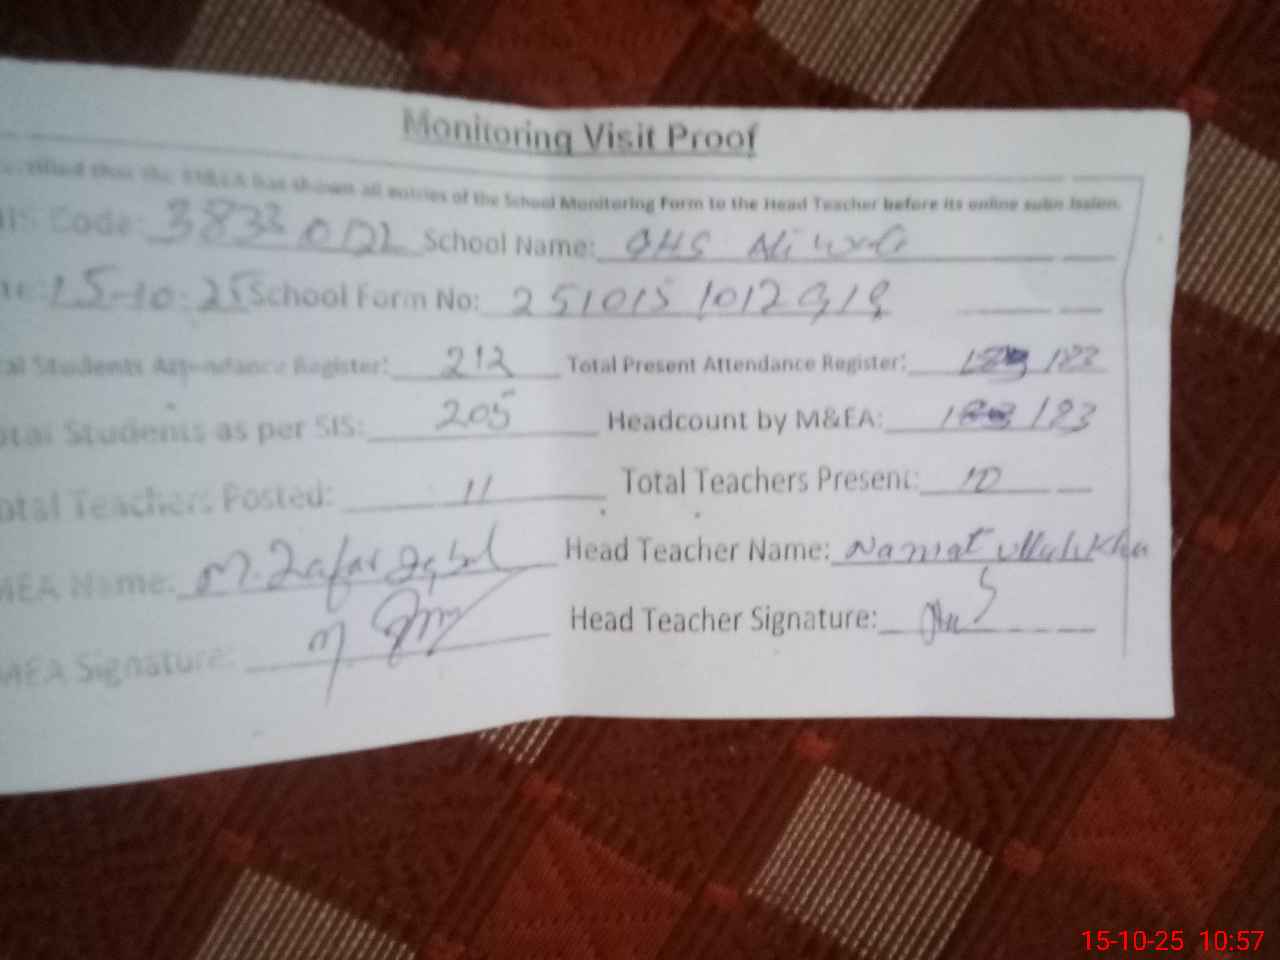 Monitoring Visit Proof
that the M&EA has shown all entries of the School Monitoring Form to the Head Teacher before its online submission.
IS Code: School Name: GHS
15-10-25 School Form No: 251015
al Students Attendance Register: 212 Total Present Attendance Register:
otal Students as per SIS: 205 Headcount by M&EA: 183
otal Teachers Posted: 11 Total Teachers Present: 10
MEA Name: M. Zafar Iqbal Head Teacher Name: Namat ullah Khan
MEA Signature: Head Teacher Signature:
15-10-25 10:57